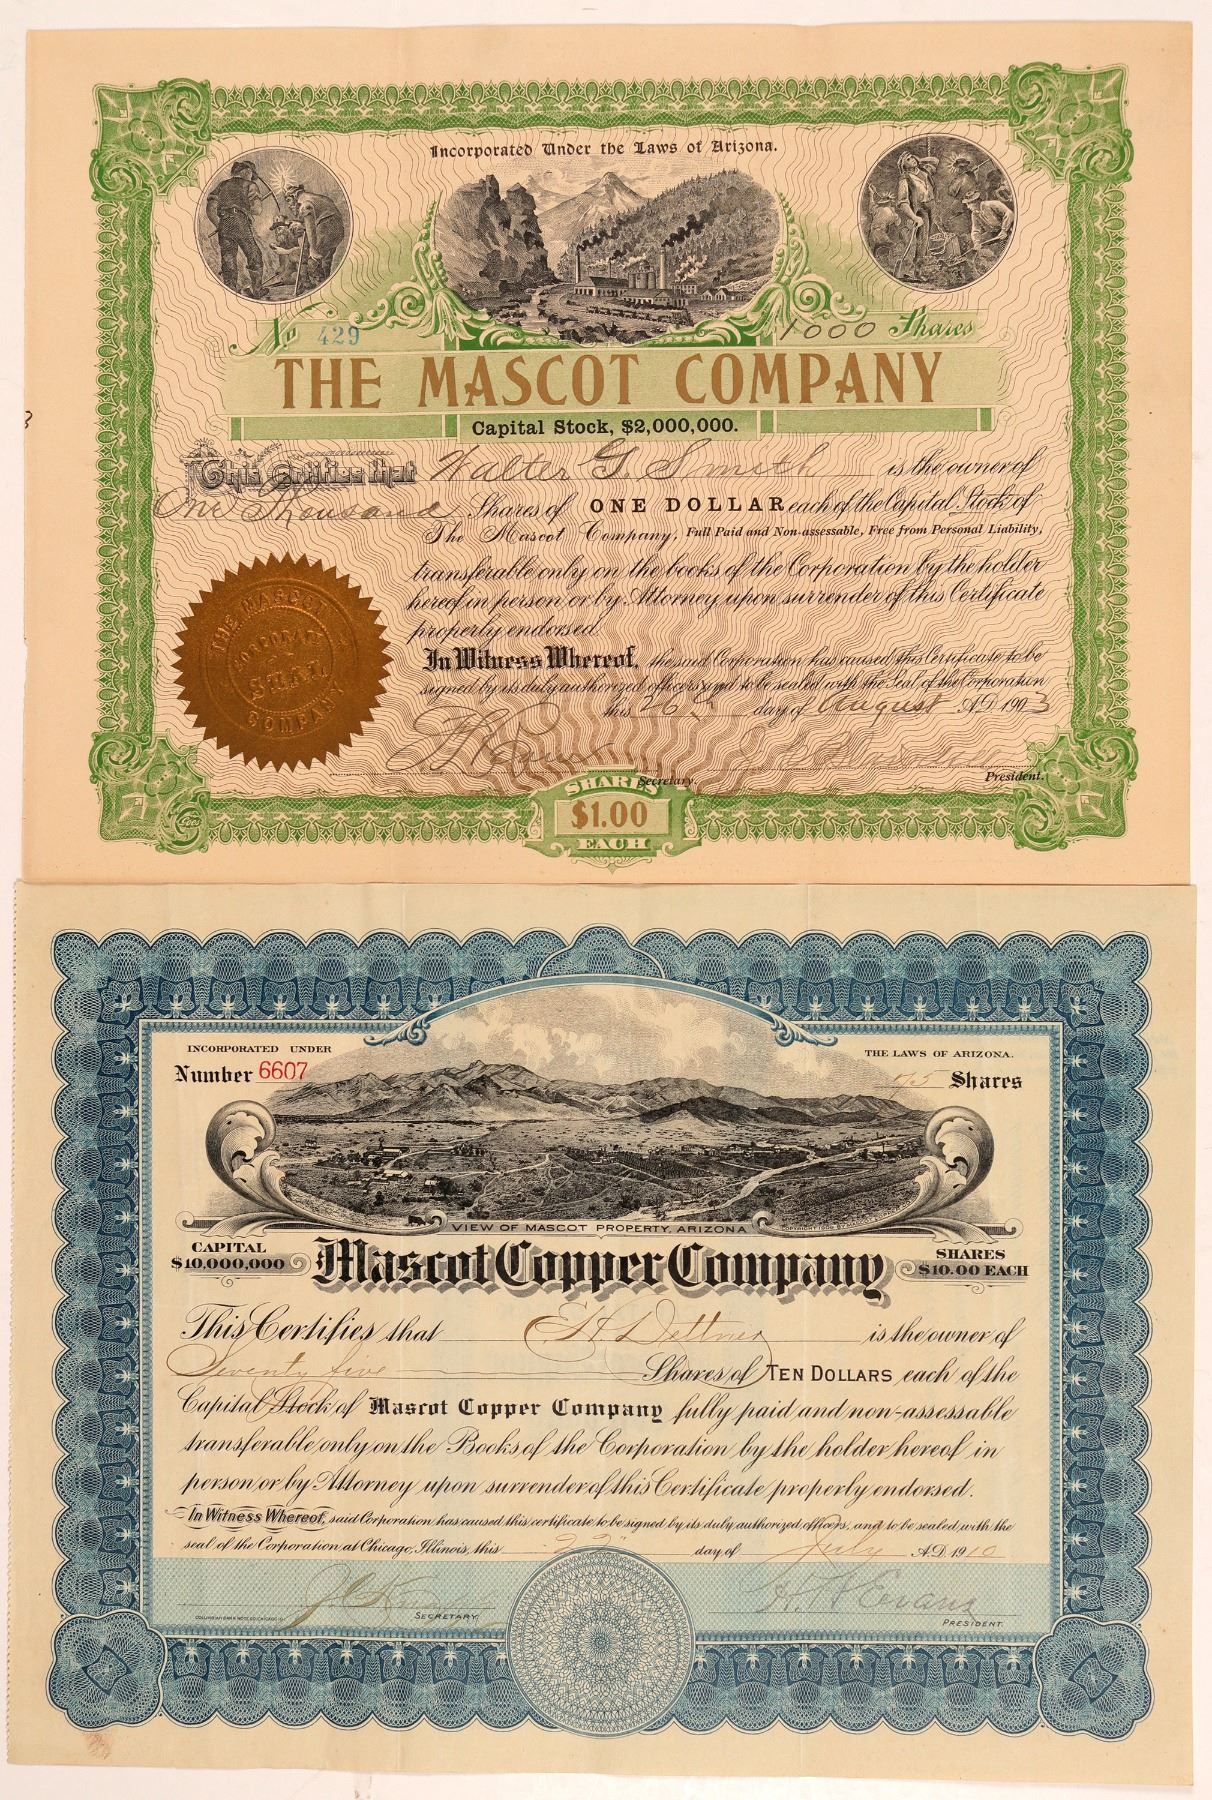 Incorporated Under the Laws of Arizona.
No 429
1000 Shares
THE MASCOT COMPANY
Capital Stock, $2,000,000.
This Certifies that Walter G. Smith is the owner of
One Thousand Shares of ONE DOLLAR each of the Capital Stock of
The Mascot Company, Full Paid and Non-assessable, Free from Personal Liability,
transferable only on the books of the Corporation by the holder
hereof in person or by Attorney upon surrender of this Certificate
properly endorsed.
In Witness Whereof, the said Corporation has caused this Certificate to be
signed by its duly authorized officers and to be sealed with the Seal of the Corporation
this 26 day of August A.D. 1903
THE MASCOT COMPANY
CORPORATE SEAL
Secretary.
President.
SHARES
$1.00
EACH
INCORPORATED UNDER
THE LAWS OF ARIZONA.
Number 6607
75 Shares
VIEW OF MASCOT PROPERTY, ARIZONA
CAPITAL
$10,000,000
Mascot Copper Company
SHARES
$10.00 EACH
This Certifies that E H Dettner is the owner of
Seventy five Shares of TEN DOLLARS each of the
Capital Stock of Mascot Copper Company fully paid and non-assessable
transferable only on the Books of the Corporation by the holder hereof in
person or by Attorney upon surrender of this Certificate properly endorsed.
In Witness Whereof, said Corporation has caused this certificate to be signed by its duly authorized officers, and to be sealed with the
seal of the Corporation at Chicago, Illinois, this 22 day of July A.D. 1910
Evans
SECRETARY.
PRESIDENT.